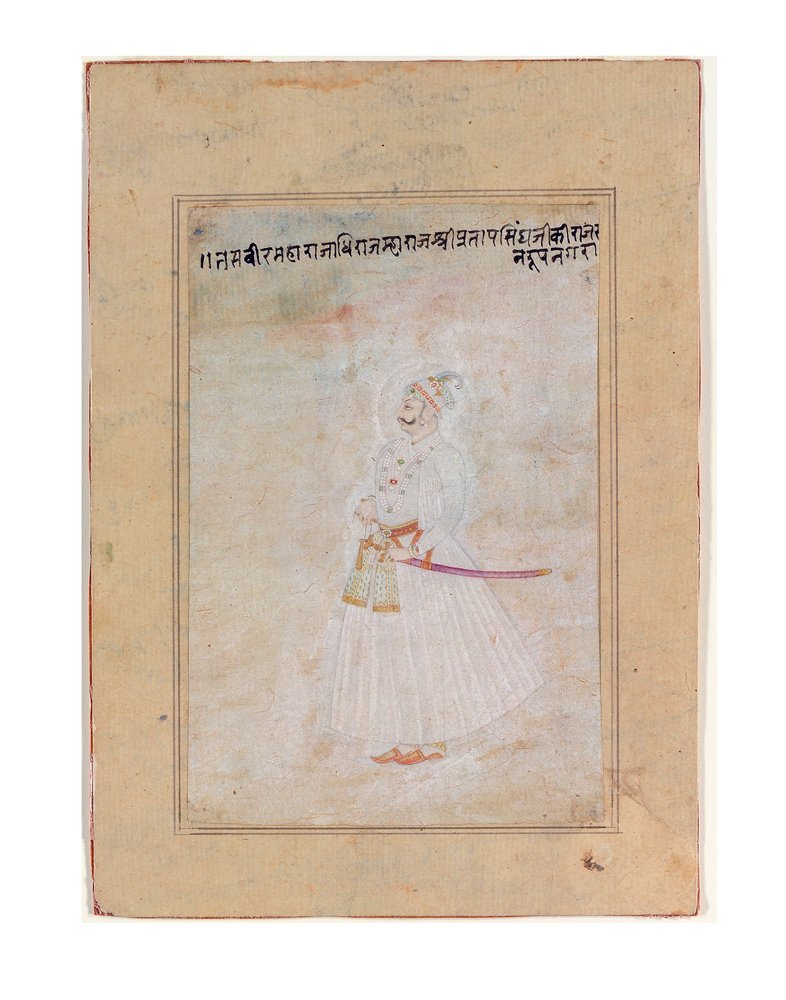 ।। तसवीर महाराजाधिराज म्हाराज श्री प्रताप सिंघजी की राजस
न रूपनगरा